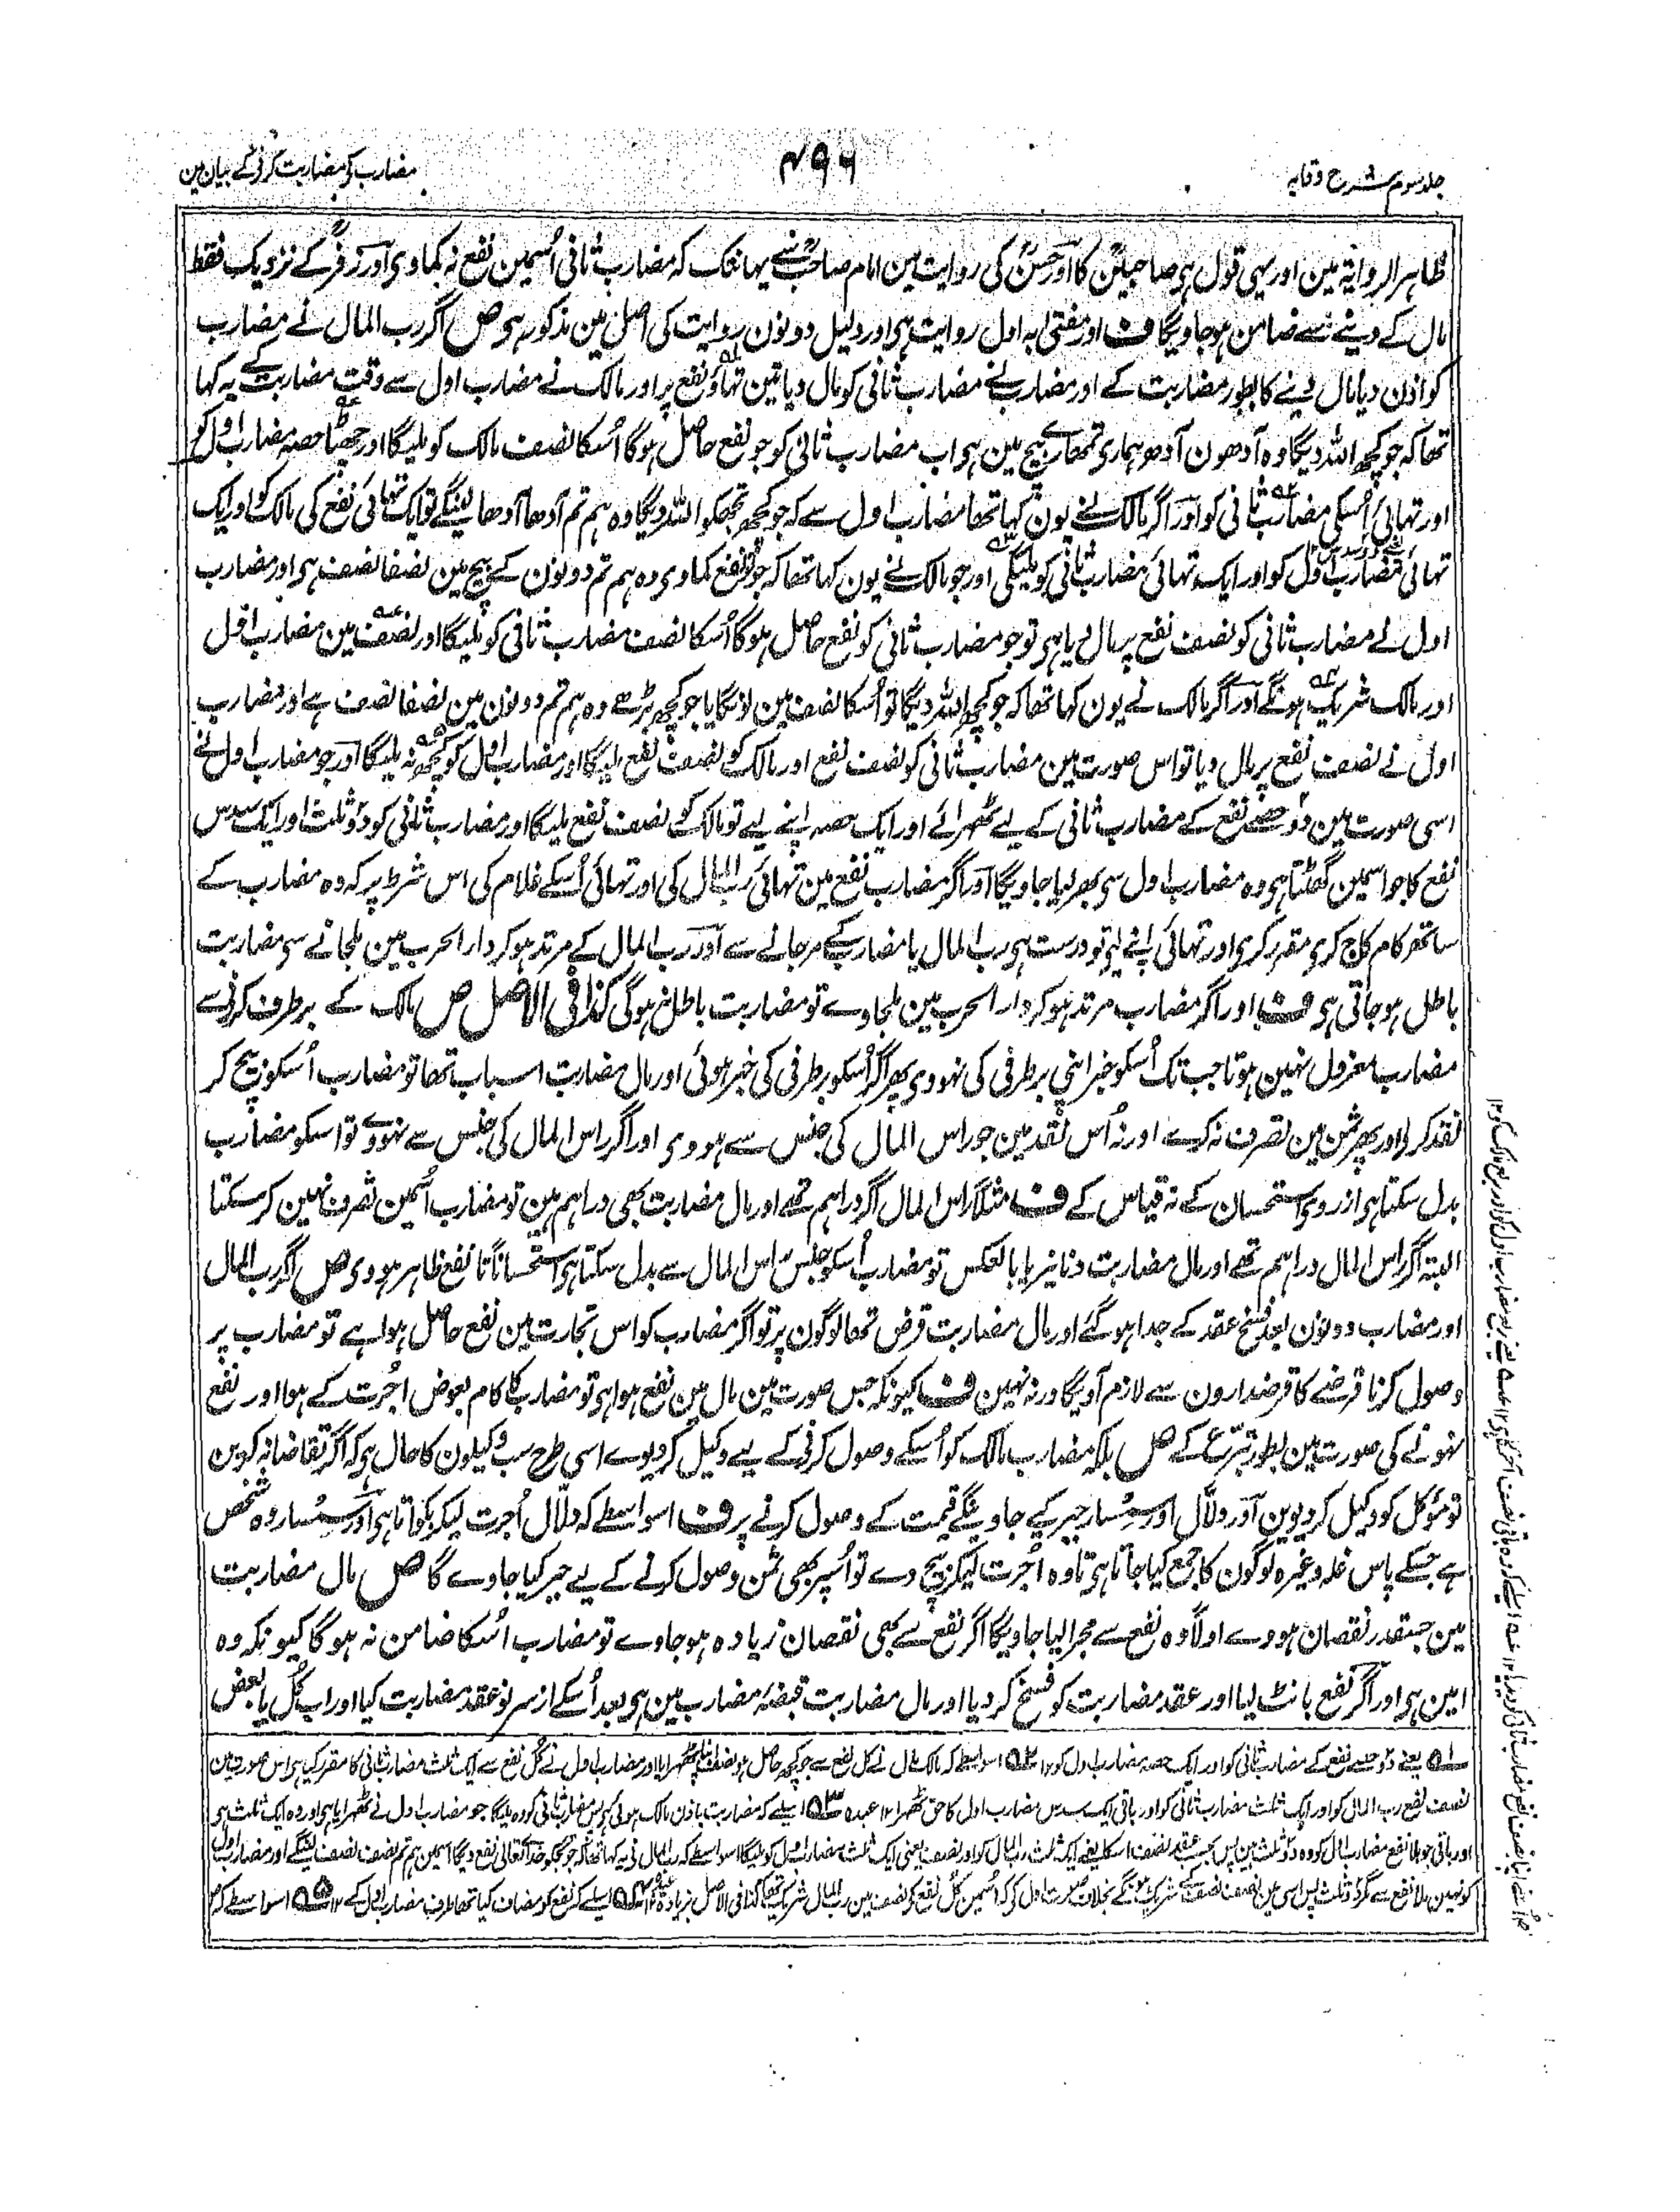 جلد سوم شرح وقایہ
۴۹۶
مضارب کو مضاربت کرنے کے بیان مین
ظاہر الروایۃ مین اور یہی قول ہی صاحبینؒ کا اور حسنؒ کی روایت مین امام صاحبؒ سے یہانتک کہ مضارب ثانی اُسمین نفع نہ کماوی اور زفرؒ کے نزدیک فقط
مال کے دینے سے ضامن ہو جاویگا ف اور مفتی بہ اول روایت ہی اور دلیل دونون روایت کی اصل مین مذکور ہی ص اگر رب المال نے مضارب
کو اذن دیا مال دینے کا بطور مضاربت کے اور مضارب نے مضارب ثانی کو مال دیا تین تہاؤ نفع پر اور مالک نے مضارب اول سے وقت مضاربت کے یہ کہا
تھا کہ جو کچھ اللہ دیگا وہ آدھون آدھ ہماری تمھارے بیچ مین ہی اب مضارب ثانی کو جو نفع حاصل ہوگا اُسکا نصف مالک کو ملیگا اور چھٹا حصہ مضارب اول کو
اور تہائی اُسکی مضارب ثانی کو اور اگر مالک نے یون کہا تھا مضارب اول سے کہ جو کچھ تجھکو اللہ دیگا وہ ہم تم آدھا آدھا لینگے تو ایک تہائی نفع کی مالک کو اور ایک
تہائی مضارب اول کو اور ایک تہائی مضارب ثانی کو ملیگی اور جو مالک نے یون کہا تھا کہ جو تو نفع کماوی وہ ہم تم دونون کے بیچ مین نصفا نصف ہی اور مضارب
اول نے مضارب ثانی کو نصف نفع پر مال دیا ہی تو جو مضارب ثانی کو نفع حاصل ہوگا اُسکا نصف مضارب ثانی کو ملیگا اور نصف مین مضارب اول
اور مالک شریک ہونگے اور اگر مالک نے یون کہا تھا کہ جو کچھ اللہ دیگا تو اُسکا نصف مین لونگا یا جو کچھ بڑھے وہ ہم تم دونون مین نصفا نصف ہے اور مضارب
اول نے نصف نفع پر مال دیا تو اس صورت مین مضارب ثانی کو نصف نفع اور مالک کو نصف نفع ملیگا اور مضارب اول کو کچھ نہ ملیگا اور جو مضارب اول نے
اسی صورت مین دو حصے نفع کے مضارب ثانی کے لیے ٹھہرائے اور ایک حصہ اپنے لیے تو مالک کو نصف نفع ملیگا اور مضارب ثانی کو دو ثلث اور ایک سدس
نفع کا جو اسمین گھٹتا ہی وہ مضارب اول سی بھر لیا جاویگا اور اگر مضارب نفع مین تہائی رب المال کی اور تہائی اُسکے غلام کی اس شرط پر کہ وہ مضارب کے
ساتھ کام کاج کری مقرر کری اور تہائی اپنے لیے تو درست ہی رب المال یا مضارب کے مر جانے سے اور رب المال کے مرتد ہو کر دار الحرب مین ملجانے سی مضاربت
باطل ہو جاتی ہی ف اور اگر مضارب مرتد ہو کر دار الحرب مین ملجاوے تو مضاربت باطل نہوگی کذا فی الاصل ص مالک کے برطرف کرنے سے
مضارب معزول نہین ہوتا جب تک اُسکو خبر اپنی برطرفی کی نہووی پھر اگر اُسکو برطرفی کی خبر ہوئی اور مال مضاربت اسباب تھا تو مضارب اُسکو بیچ کر
نقد کر لے اور پھر ثمن مین تصرف نہ کرے اور نہ اُس نقد مین جو راس المال کی جنس سے ہووی اور اگر راس المال کی جنس سے نہووے تو اسکو مضارب
بدل سکتا ہی از روی استحسان کے نہ قیاس کے ف مثلا راس المال اگر دراہم تھے اور مال مضاربت بھی دراہم ہین تو مضارب اُسمین تصرف نہین کر سکتا
البتہ اگر راس المال دراہم تھے اور مال مضاربت دنانیر یا بالعکس تو مضارب اُسکو جنس راس المال سے بدل سکتا ہی استحساناً تا نفع ظاہر ہووی ص اگر رب المال
اور مضارب دونون بعد فسخ عقد کے جدا ہو گئے اور مال مضاربت قرض تھا لوگون پر تو اگر مضارب کو اس تجارت مین نفع حاصل ہوا ہے تو مضارب پر
وصول کرنا قرضے کا قرضدارون سے لازم آویگا ورنہ نہین ف کیونکہ جس صورت مین مال مین نفع ہوا ہی تو مضارب کا کام بعوض اجرت کے ہوا اور نفع
نہونے کی صورت مین بطور تبرع کے ص بلکہ مضارب مالک کو اُسکے وصول کرنے کے لیے وکیل کر دیوے اسی طرح سب وکیلون کا حال ہی کہ اگر تقاضا نہ کرین
تو مؤکل کو وکیل کر دیوین اور دلّال اور سمسار جبر کیے جاوینگے قیمت کے وصول کرنے پر ف اسواسطے کہ دلّال اُجرت لیکر بکواتا ہی اور سمسار وہ شخص
ہے جسکے پاس غلہ وغیرہ لوگون کا جمع کیا جاتا ہی تا وہ اُجرت لیکر بیچ دے تو اُسپر بھی ثمن وصول کرنے کے لیے جبر کیا جاوے گا ص مال مضاربت
مین جسقدر نقصان ہووے اولاً وہ نفع سے مجرا لیا جاویگا اگر نفع سے بھی نقصان زیادہ ہو جاوے تو مضارب اُسکا ضامن نہ ہوگا کیونکہ وہ
امین ہی اور اگر نفع بانٹ لیا اور عقد مضاربت کو فسخ کر دیا اور مال مضاربت قبضۂ مضارب مین ہی بعد اُسکے از سر نو عقد مضاربت کیا اور اب کُل یا بعض
یعنے دو حصے نفع کے مضارب ثانی کو اور ایک حصہ مضارب اول کو ۱۲ اسواسطے کہ مالک مال نے کل نفع سے جو کچھ حاصل ہو نصف اپنا ٹھہرایا اور مضارب اول نے کُل نفع سے ایک ثلث مضارب ثانی کا مقرر کیا پس اس صورت مین
نصف نفع رب المال کو اور ایک ثلث مضارب ثانی کو اور باقی ایک سدس مضارب اول کا حق ٹھہرا ۱۲ عبدہ اسلیے کہ مضاربت باذن مالک ہوئی ہی پس مضارب ثانی کو وہ ملیگا جو مضارب اول نے ٹھہرایا ہی اور وہ ایک ثلث ہی
اور باقی جو ملا نفع مضارب اول کو وہ دو ثلث ہین پس بحسب عقد نصف اسکا یعنے ایک ثلث رب المال کو اور نصف یعنی ایک ثلث مضارب اول کو ملیگا اسواسطے کہ رب المال نے یہ کہا تھا کہ جو تجھکو خدا تعالی نفع دیگا اسمین ہم تم نصف نصف لینگے اور مضارب اول
کو نہین ملا نفع سے مگر دو ثلث پس اسی مین نصف نصف کے شریک ہونگے بخلاف صورت اول کے کہ اُسمین کُل نفع کو نصف مین رب المال شریک تھا کذا فی الاصل بزیادۃ ۱۲ اسلیے کہ نفع کو مضاف کیا تھا طرف مضارب اول کے ۱۲ اسواسطے کہ